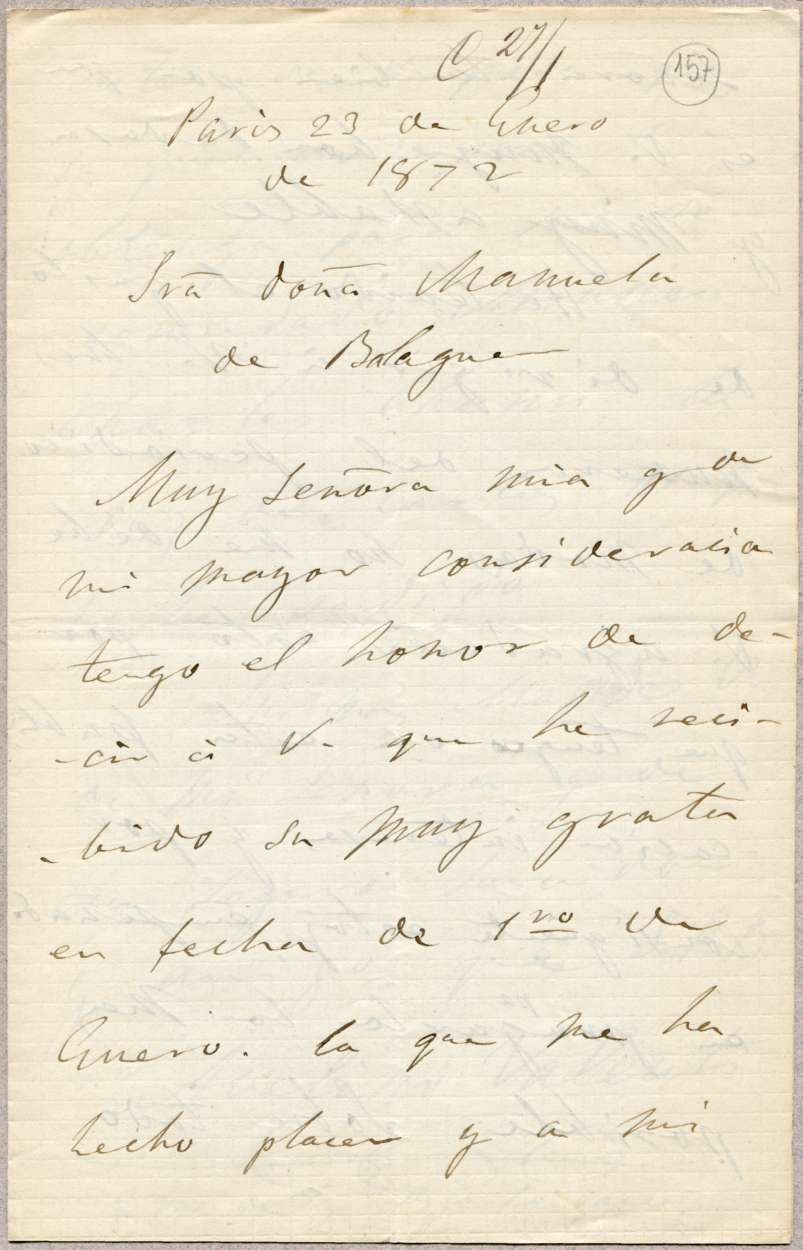 C 27/1
157
Paris 23 de Enero
de 1872
Sra doña Manuela
de Balaguer
Muy señora mia y de
mi mayor consideracion
tengo el honor de de-
-cir á V. que he reci-
-bido su muy grata
en fecha de 1ro de
Enero. la que me ha
hecho placer y a mi